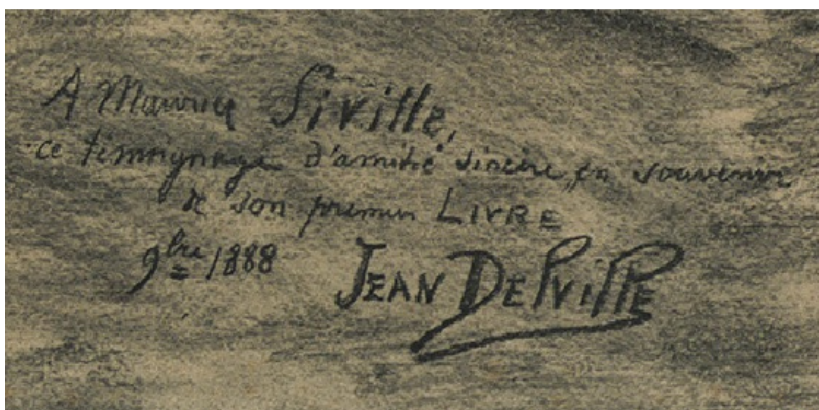 A Maurice Siville,
ce témoignage d'amitié sincère, en souvenir
de son premier LIVRE
9bre 1888 JEAN DELVILLE